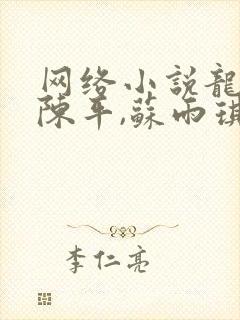 网络小説龍
陳平,蘇雨琪
李仁亮